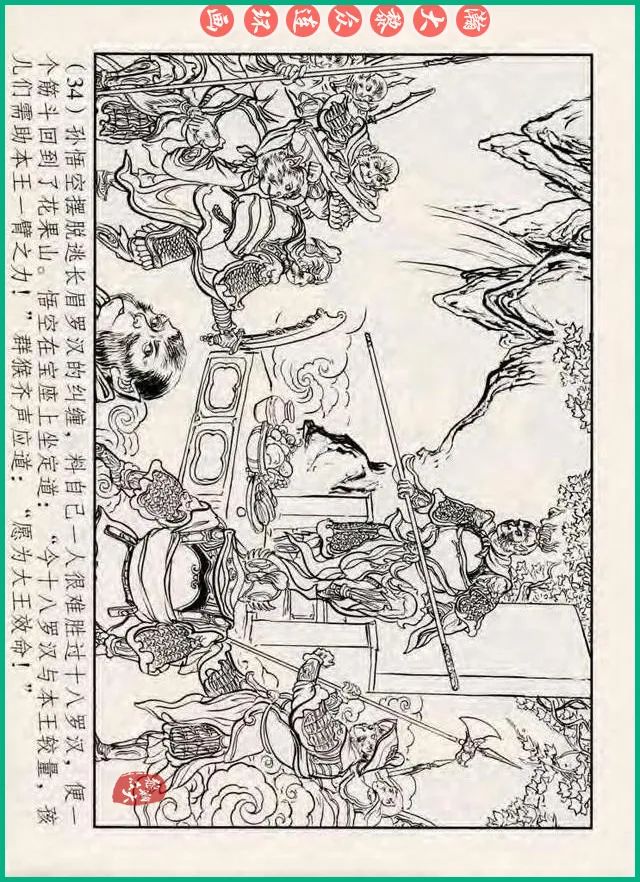 瀚大黎众连环画
(34) 孙悟空摆脱逃长眉罗汉的纠缠，料自己一人很难胜过十八罗汉，便一
个筋斗回到了花果山。悟空在宝座上坐定道：“今十八罗汉与本王较量，孩
儿们需助本王一臂之力！”群猴齐声应道：“愿为大王效命！”